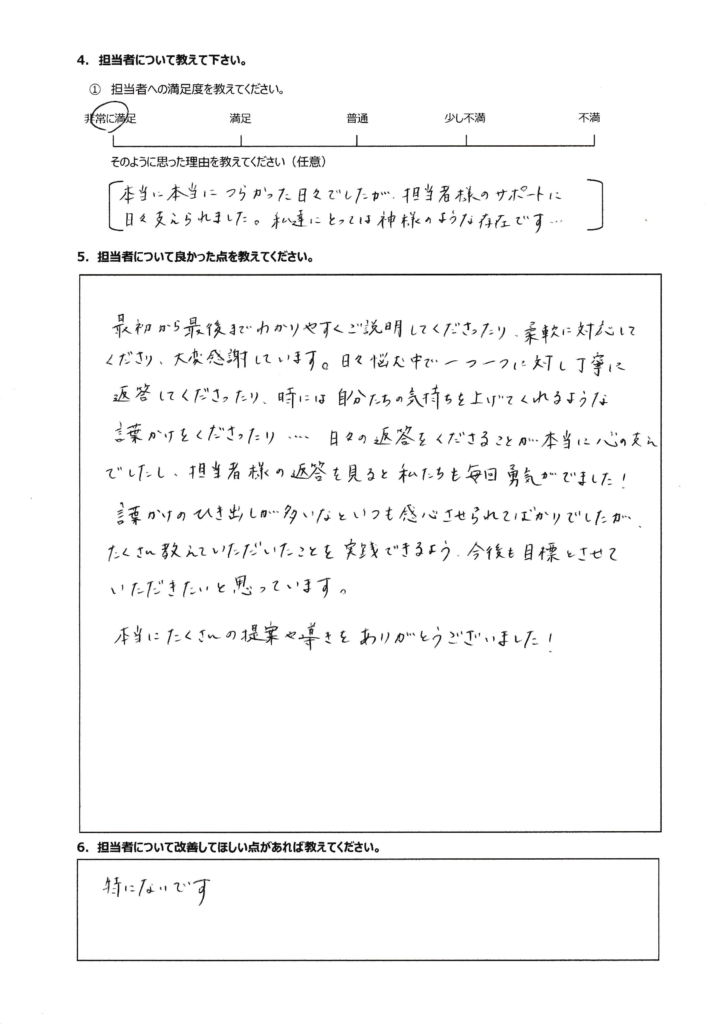 4. 担当者について教えて下さい。
① 担当者への満足度を教えてください。
非常に満足 満足 普通 少し不満 不満
そのように思った理由を教えてください（任意）
本当に本当につらかった日々でしたが、担当者様のサポートに
日々支えられました。私達にとっては神様のような存在です…
5. 担当者について良かった点を教えてください。
最初から最後までわかりやすくご説明してくださったり、柔軟に対応して
くださり、大変感謝しています。日々悩む中で一つ一つに対し丁寧に
返答してくださったり、時には自分たちの気持ちを上げてくれるような
言葉かけをくださったり…. 日々の返答をくださることが本当に心の支え
でしたし、担当者様の返答を見ると私たちも毎回勇気がでました！
言葉かけのひき出しが多いなといつも感心させられてばかりでしたが、
たくさん教えていただいたことを実践できるよう、今後も目標とさせて
いただきたいと思っています。
本当にたくさんの提案や導きをありがとうございました！
6. 担当者について改善してほしい点があれば教えてください。
特にないです